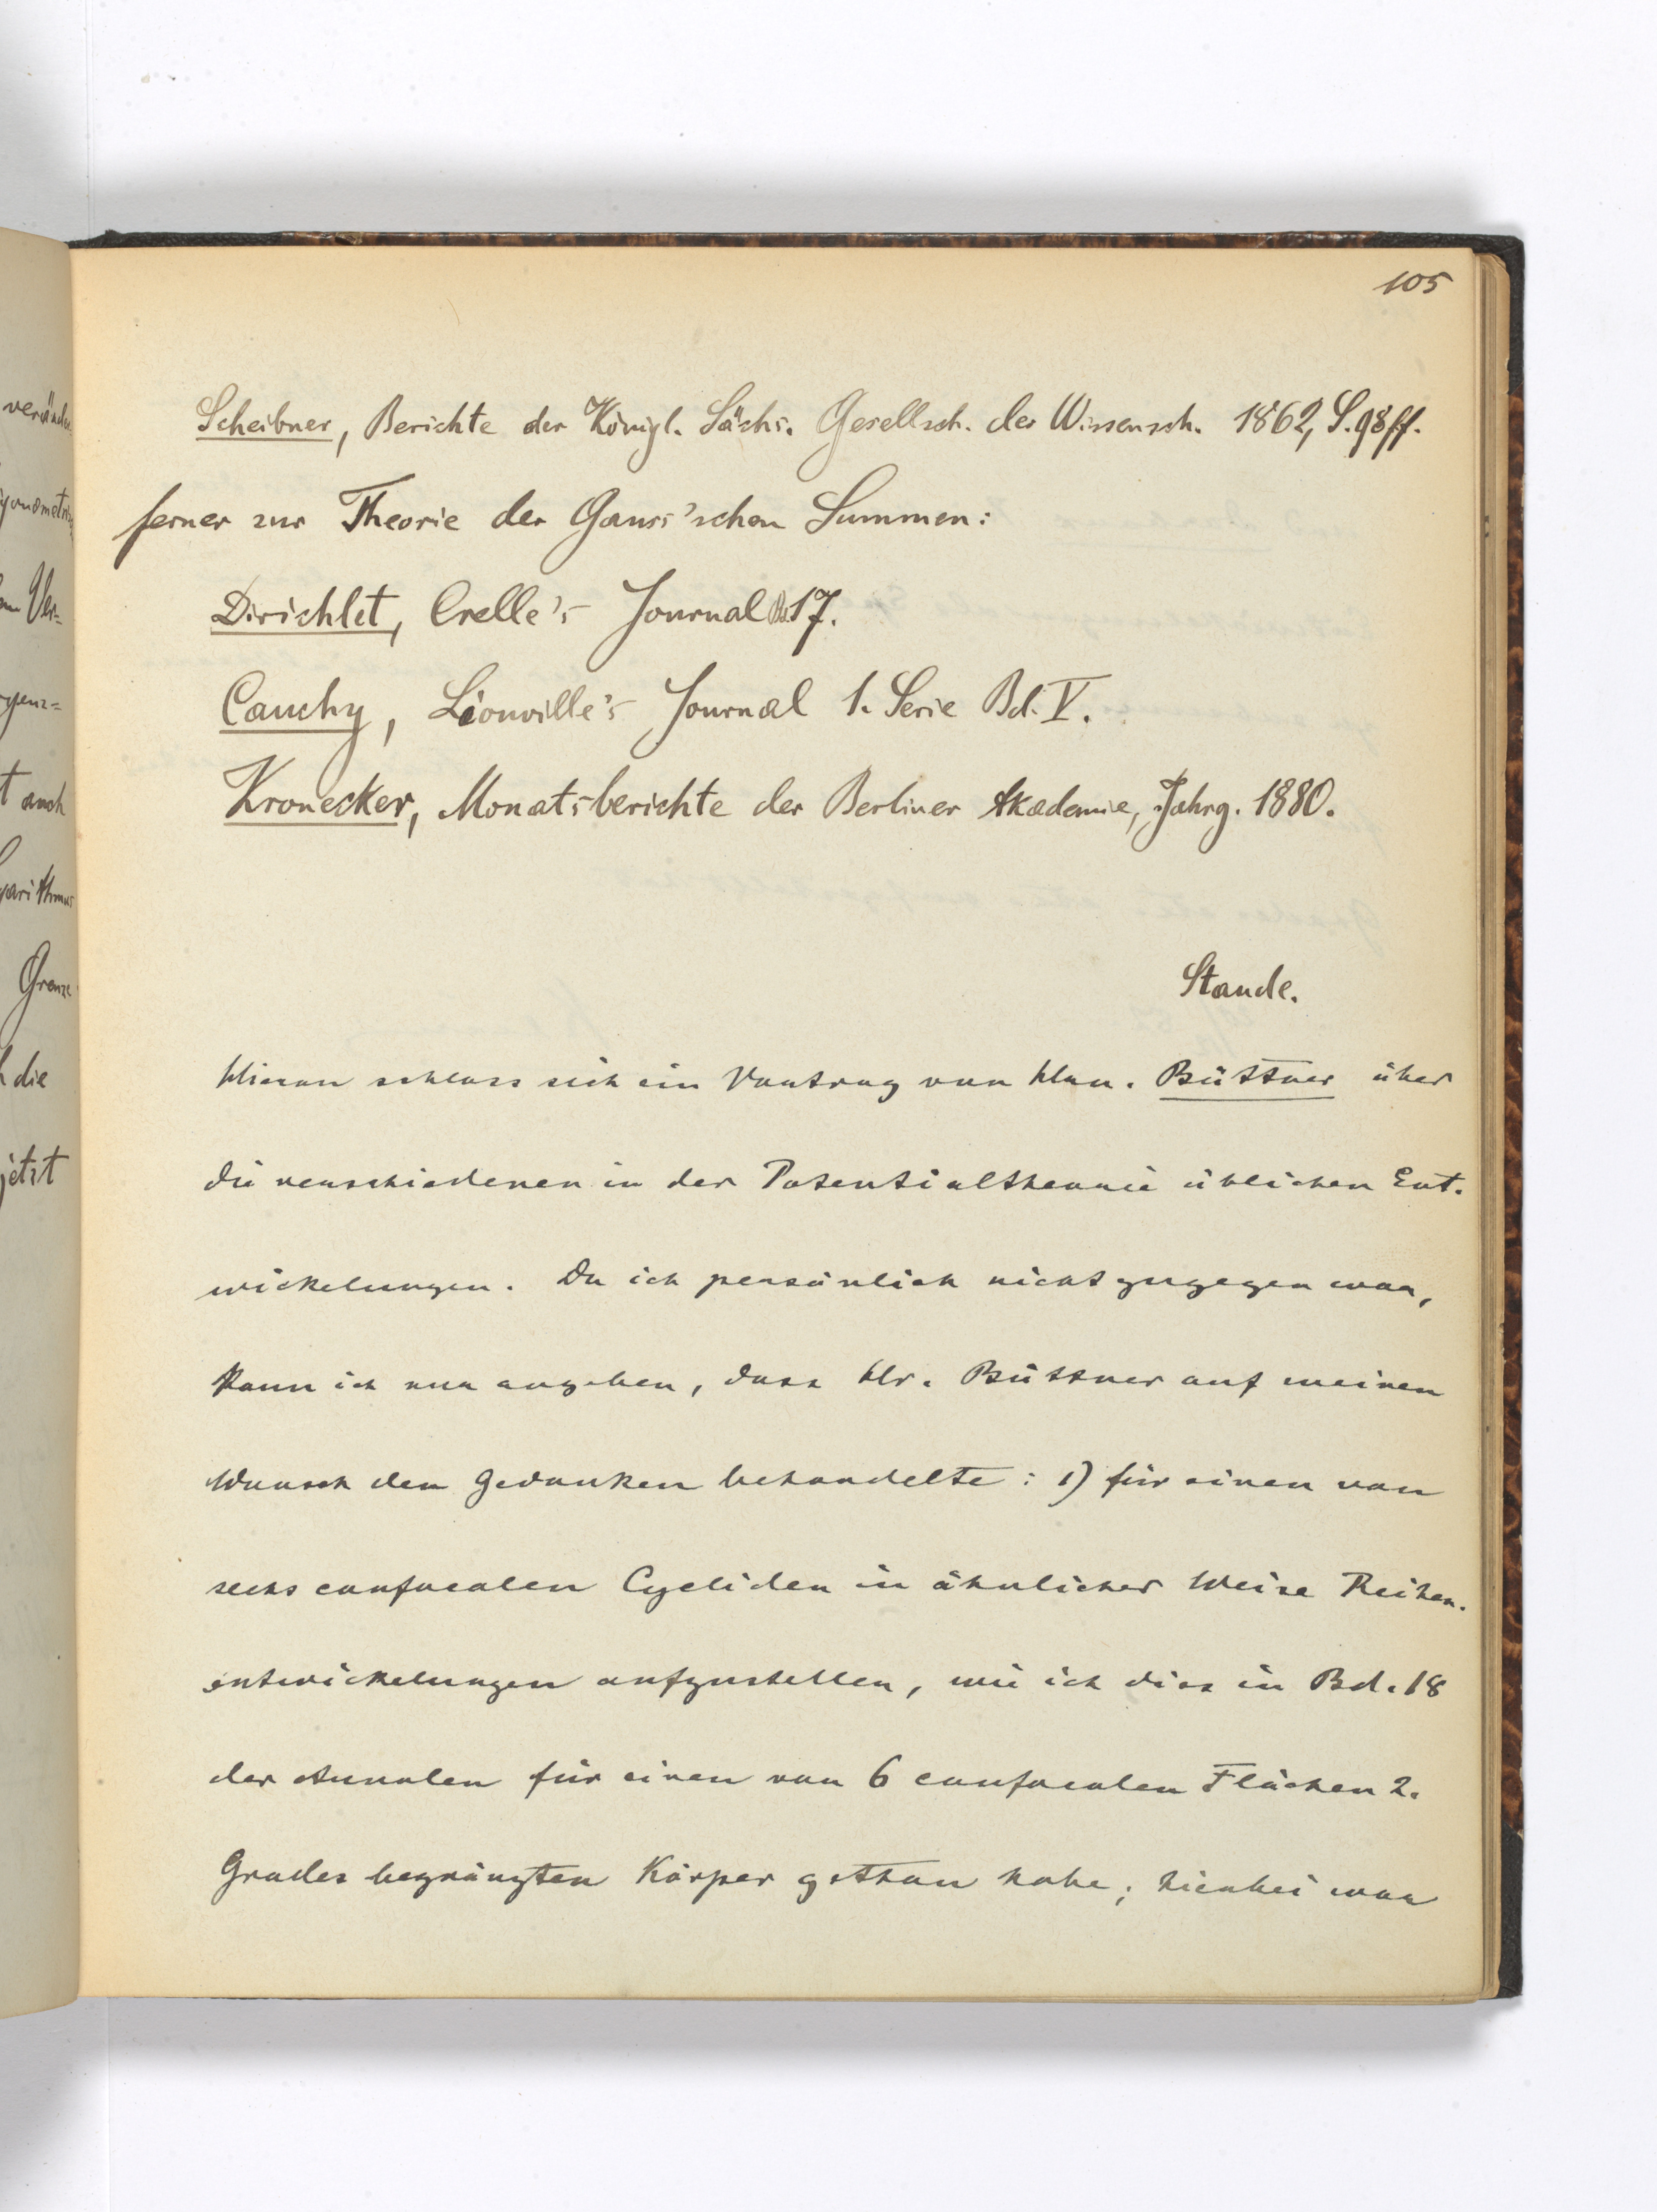 105
Scheibner, Berichte der Königl. Sächs. Gesellsch. der Wissensch. 1862, S. 98 ff.
ferner zur Theorie der Gauss'schen Summen:
Dirichlet, Crelle's Journal Bd. 17.
Cauchy, Liouville's Journal 1. Serie Bd. V.
Kronecker, Monatsberichte der Berliner Akademie, Jahrg. 1880.
Staude.
Hieran schloss sich ein Vortrag von Hrn. Büttner über
die verschiedenen in der Potentialtheorie üblichen Ent-
wickelungen. Da ich persönlich nicht zugegen war,
kann ich nur angeben, dass Hr. Büttner auf meinen
Wunsch den Gedanken behandelte: 1) für einen von
sechs confocalen Cycliden in ähnlicher Weise Reihen-
entwickelungen aufzustellen, wie ich dies in Bd. 18
der Annalen für einen von 6 confocalen Flächen 2.
Grades begränzten Körper gethan habe; hierbei war
verändn
gonometri
Ver=
genz=
t auch
garithmus
Grenze
die
jetzt